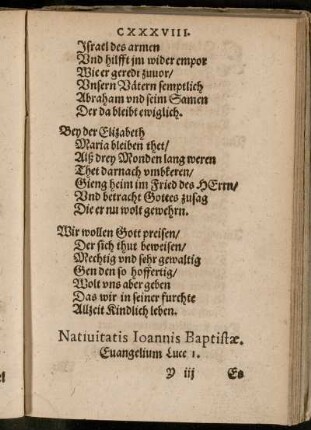 CXXXVIII.
Israel des armen
Vnd hilfft jm wider empor
Wie er geredt zuuor/
Vnsern Vätern semptlich
Abraham vnd seim Samen
Der da bleibt ewiglich.
Bey der Elizabeth
Maria bleiben thet/
Alß drey Monden lang weren
Thet darnach vmbkeren/
Gieng heim im Fried des HErrn/
Vnd betracht Gottes zusag
Die er nu wolt gewehrn.
Wir wollen Gott preisen/
Der sich thut beweisen/
Mechtig vnd sehr gewaltig
Gen den so hoffertig/
Wolt vns aber geben
Das wir in seiner furchte
Allzeit Kindlich leben.
Natiuitatis Ioannis Baptistæ.
Euangelium Luce 1.
Y iij Es